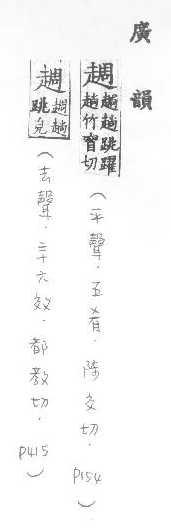 廣韻
䞴
䞴趟跳躍
趟竹盲切
（平聲．五肴．陟交切．P154）
䞴
䞴趟
跳皃
（去聲．三十六效．都教切．P415）